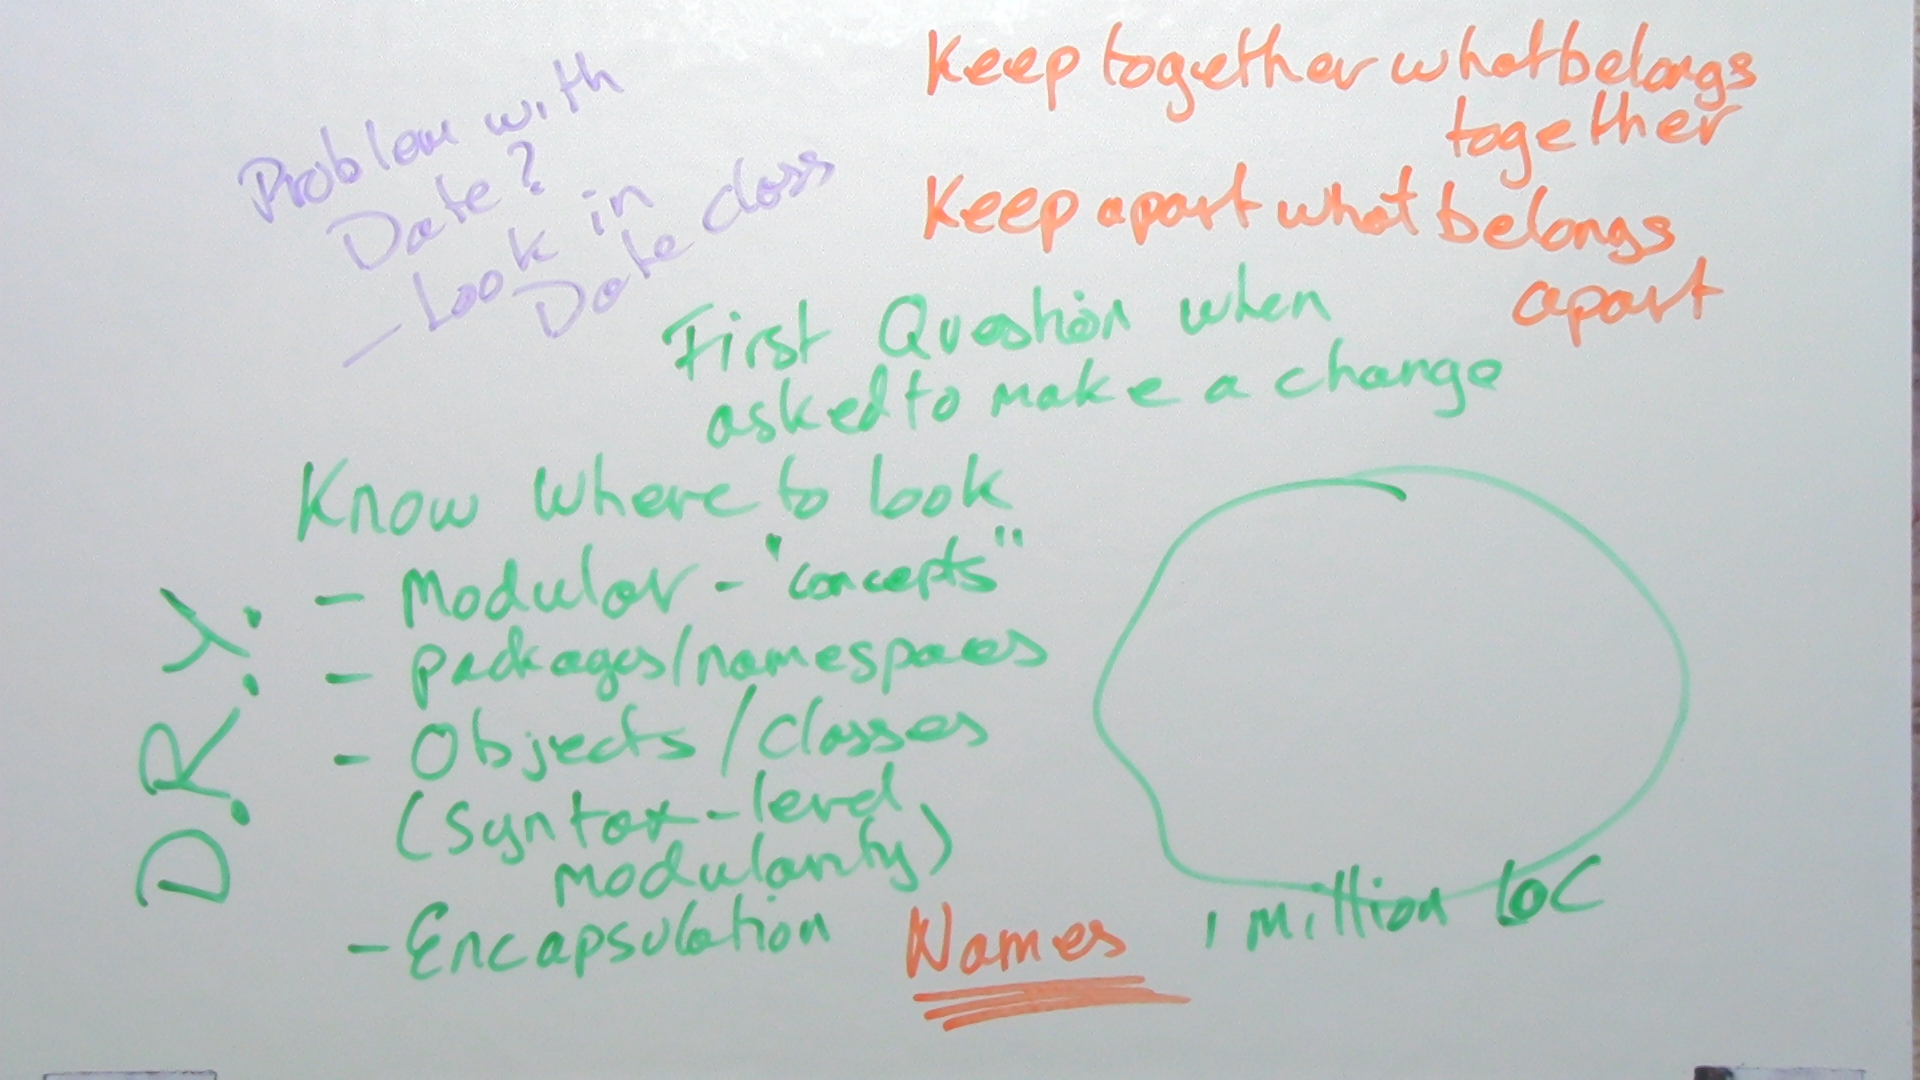 Problem with
Date?
- Look in
Date class
Keep together what belongs
together
Keep apart what belongs
apart
First Question when
asked to make a change
Know where to look
- Modular - "concepts"
- packages/namespaces
- Objects/classes
(syntax-level
modularity)
- Encapsulation
D.R.Y.
Names
1 million LoC